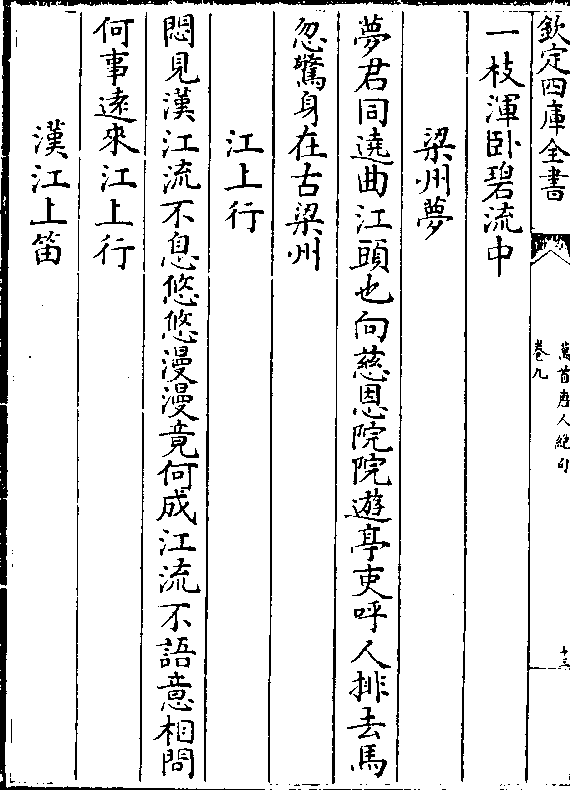 欽定四庫全書
萬首唐人絶句
卷九
十三
一枝渾卧碧流中
梁州夢
夢君同遶曲江頭也向慈恩院院遊亭吏呼人排去馬
忽驚身在古梁州
江上行
悶見漢江流不息悠悠漫漫竟何成江流不語意相問
何事遠來江上行
漢江上笛